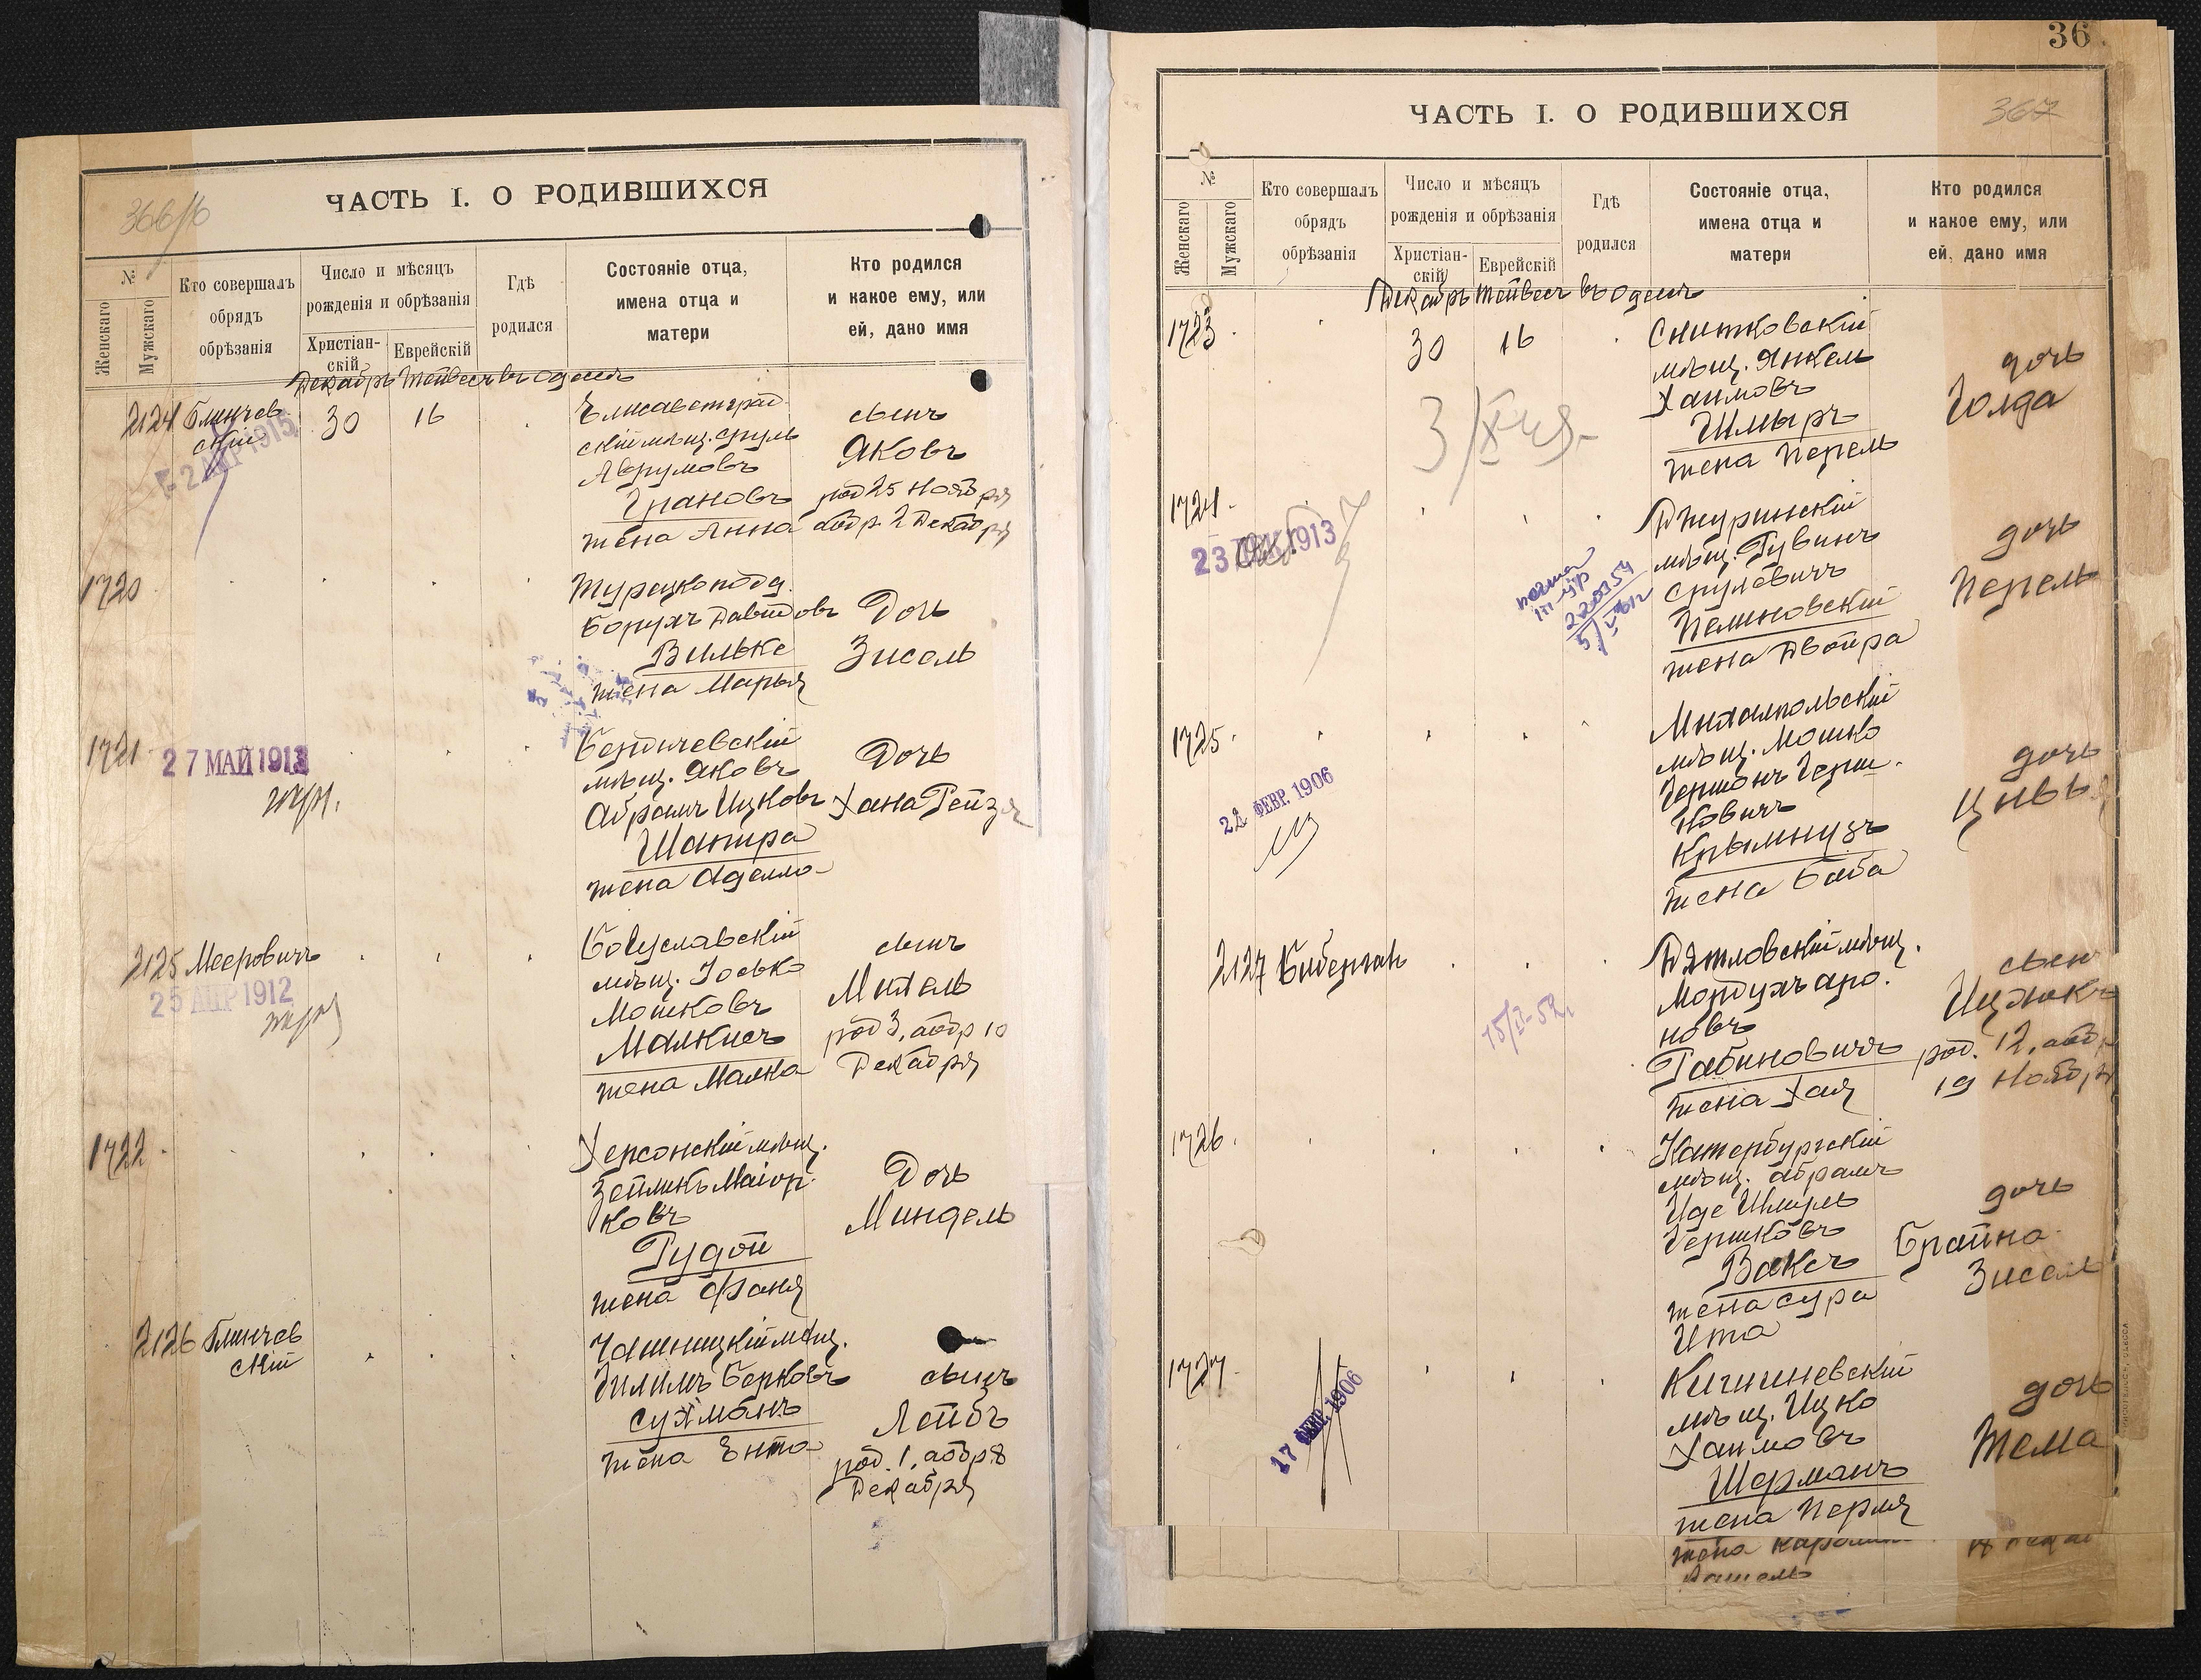 366/б
ЧАСТЬ I. О РОДИВШИХСЯ
№
Женскаго
Мужскаго
Кто совершалъ
обрядъ
обрѣзанія
Число и мѣсяцъ
рожденія и обрѣзанія
Христіан-
скій
Еврейскій
Гдѣ
родился
Состояніе отца,
имена отца и
матери
Кто родился
и какое ему, или
ей, дано имя
Декабрь Тейвесъ въ Одессѣ
2124 Блинчев
скій
2 АПР 1915
30 16
Елисаветград
скій мѣщ. Сруль
Аврумовъ
Грановъ
жена Анна
сынъ
Яковъ
род 25 Ноября
обр. 2 Декабря
1720
Турецкоподд.
Борухъ Давидовъ
Вильке
жена Марья
Дочь
Зисель
1721
27 МАЙ 1913
Бердичевскій
мѣщ. Яковъ
Абрамъ Ицковъ
Шапира
жена Аделла
Дочь
Хана Рейзя
2125 Мееровичъ
25 АПР 1912
Богуславскій
мѣщ. Іосько
Мошковъ
Малкисъ
жена Малка
сынъ
Михель
род 3, обр 10
Декабря
1722
Херсонскій мѣщ.
Зейликъ Маіор
ковъ
Рудой
жена Фаня
Дочь
Миндель
2126 Блинчев
скій
Чашницкій мѣщ.
Хилимъ Берковъ
Сухманъ
жена Ента
сынъ
Лейбъ
род. 1, обр. 8
Декабря
36
367
ЧАСТЬ I. О РОДИВШИХСЯ
№
Женскаго
Мужскаго
Кто совершалъ
обрядъ
обрѣзанія
Число и мѣсяцъ
рожденія и обрѣзанія
Христіан-
скій
Еврейскій
Гдѣ
родился
Состояніе отца,
имена отца и
матери
Кто родился
и какое ему, или
ей, дано имя
Декабрь Тейвесъ въ Одессѣ
1723
30 16
Снитковскій
мѣщ. Янкель
Хаимовъ
Шмыръ
жена Перель
дочь
Голда
1724
23 1913
Джуринскій
мѣщ. Рувинъ
Срулевичъ
Пелиновскій
жена Двойра
дочь
Перель
1725
22 ФЕВР. 1906
Михалпольскій
мѣщ. Мошко
Гершонъ Герш
ковичъ
Крымнузъ
жена Баба
дочь
Цивья
2127 Биберган
15/I-52
Дятловскій мѣщ.
Мордухъ Аро
новъ
Рабиновичъ
жена Хая
сынъ
Ицхокъ
род. 12, обр
19 Ноября
1726
Катербургскій
мѣщ. Абрамъ
Иде Шмуль
Гершковъ
Ваксъ
жена Сура
Ита
дочь
Брайна
Зисель
1727
17 ФЕВР. 1906
Кишиневскій
мѣщ. Ицко
Хаимовъ
Шерманъ
жена Перля
дочь
Тема
жена
Рашель